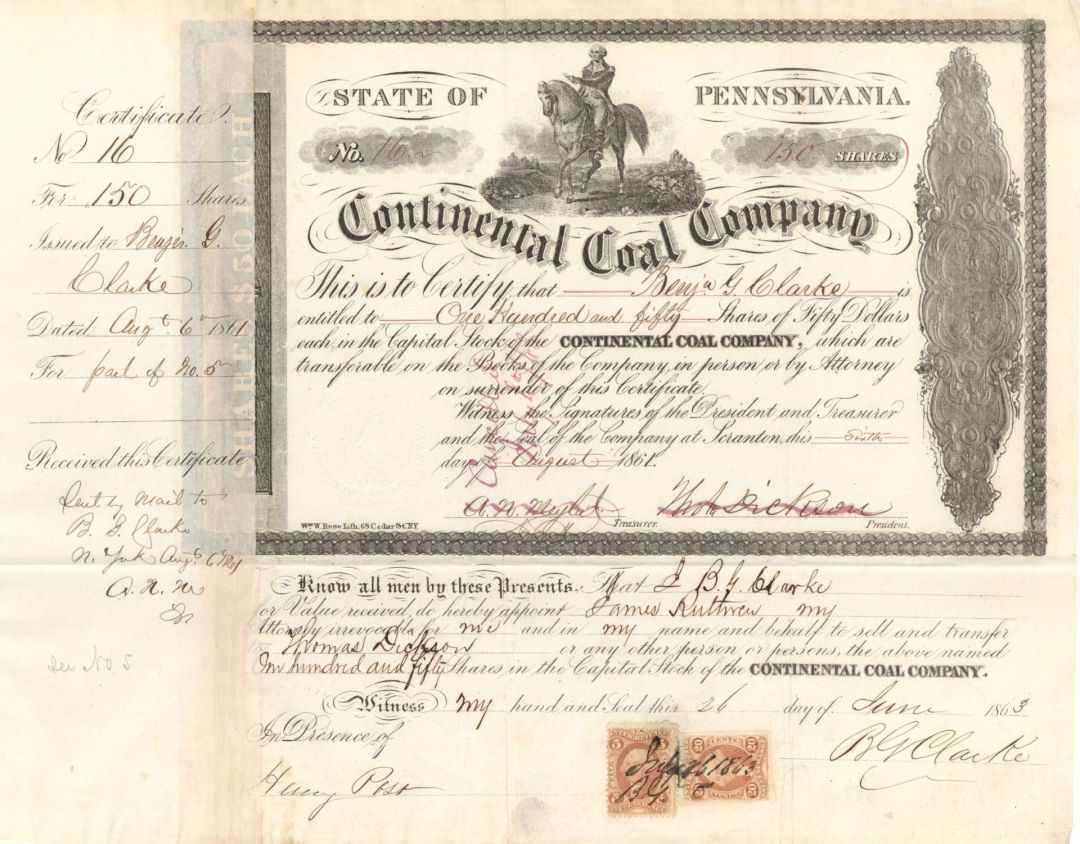 Certificate.
No 16
For 150 Shares
Issued to Benjn. G.
Clarke
Dated Augt. 6th 1861
For part of No. 5
Received this Certificate
Sent by Mail to
B. G. Clarke
N. York Augt. 6 1861
See No 5
SHARES $50 EACH
STATE OF PENNSYLVANIA.
No. 16 150 SHARES
Continental Coal Company
This is to Certify that Benja G Clarke is
entitled to One Hundred and fifty Shares of Fifty Dollars
each, in the Capital Stock of the CONTINENTAL COAL COMPANY, which are
transferable on the Books of the Company, in person or by Attorney
on surrender of this Certificate.
Witness the Signatures of the President and Treasurer
and the Seal of the Company at Scranton, this Sixth
day of August 1861.
Thos Dickson
Wm. W. Rose Lith. 68 Cedar St. N.Y. Treasurer. President.
Know all men by these Presents, That I B. G. Clarke
for Value received, do hereby appoint James my
Attorney irrevocable for me and in my name and behalf to sell and transfer
to Thomas Dickson or any other person or persons, the above named
One hundred and fifty Shares in the Capital Stock of the CONTINENTAL COAL COMPANY.
Witness my hand and Seal this 26 day of June 1863
In Presence of
B G Clarke
Henry Post
5 5
20 CENTS 20
1863
B. G. C
20 20